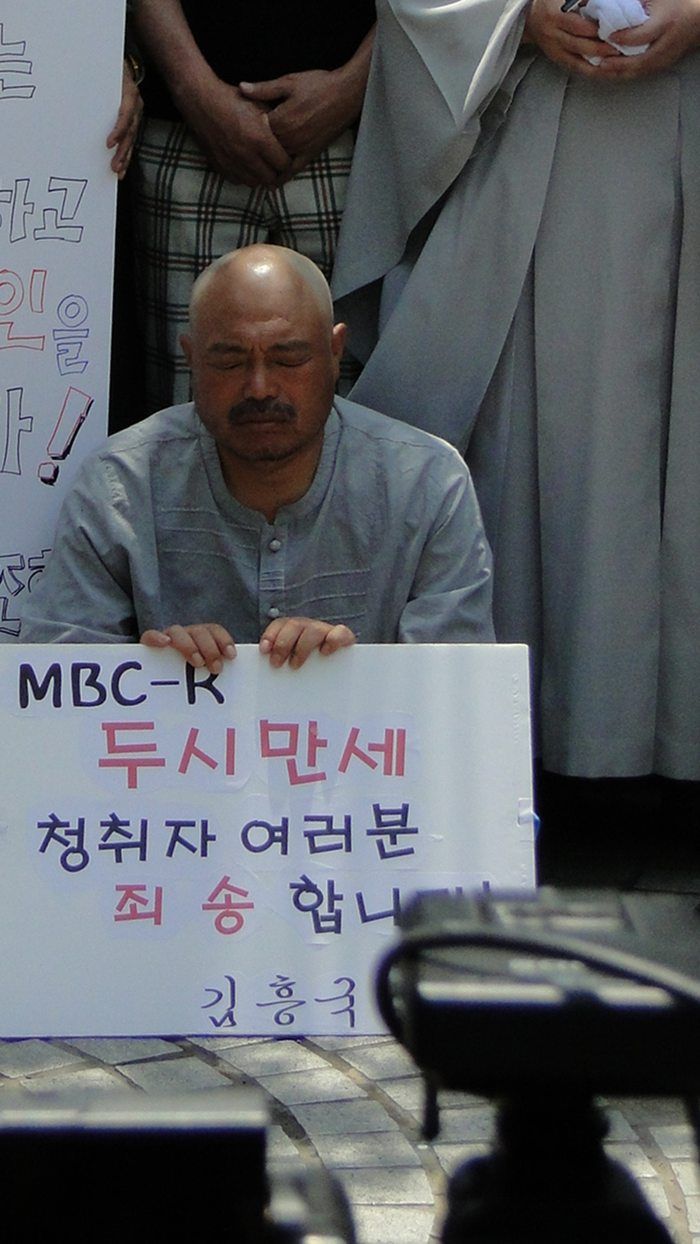 하고
인을
!
MBC-R
두시만세
청취자 여러분
죄송합니
김흥국